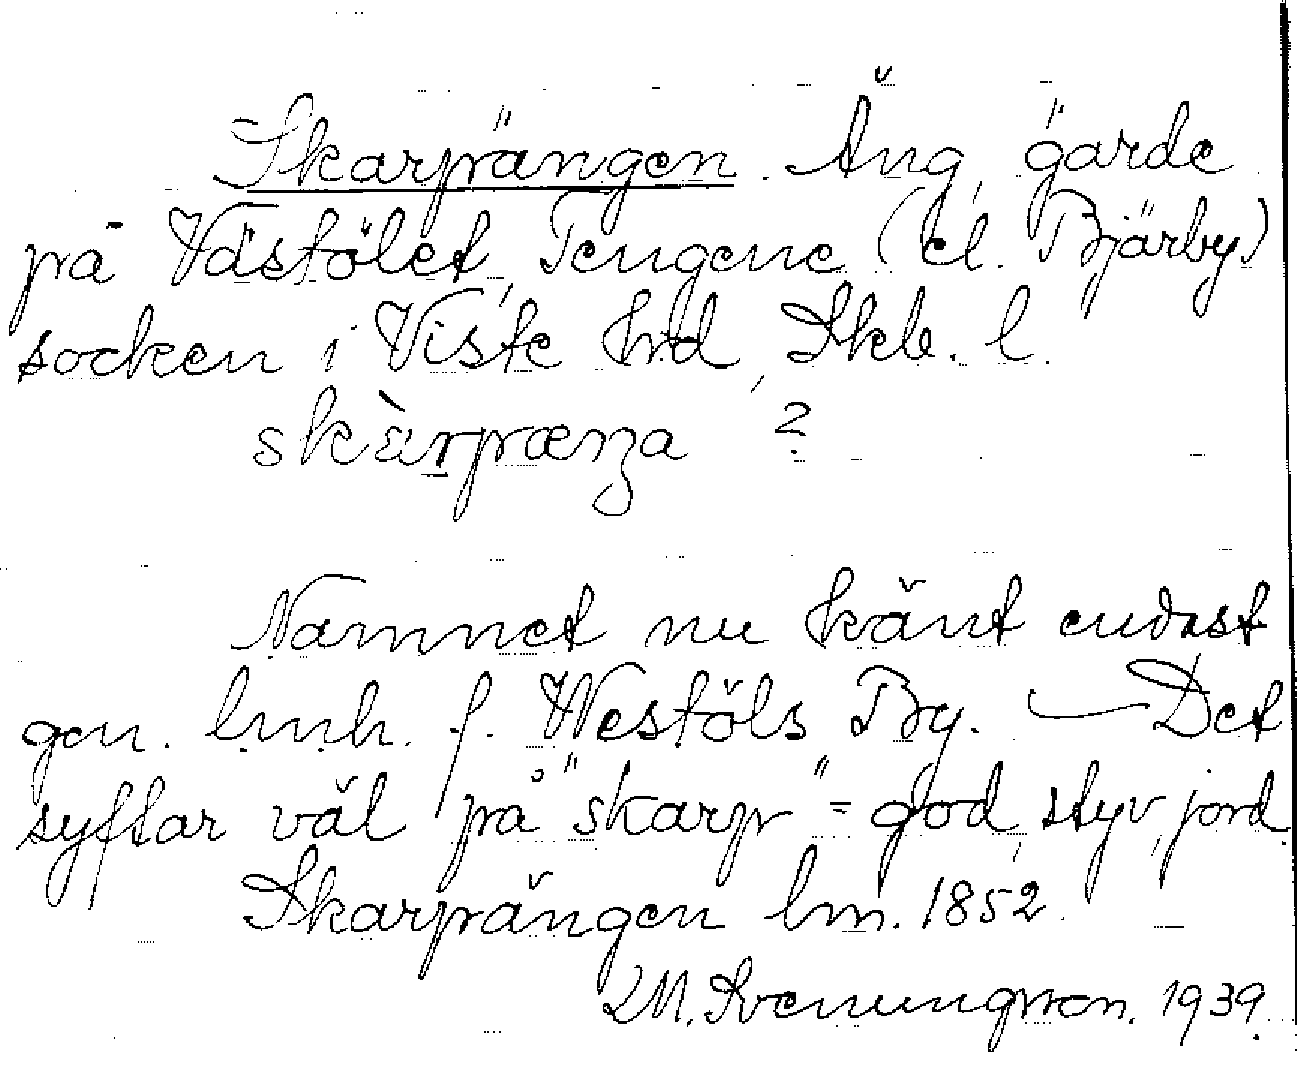 Skarpängen. Äng, gärde
på Västölet, Tengene (el. Bjärby)
socken i Viste hrd, Skb. l.
skàrpæŋa ?
Namnet nu känt endast
gen. lmh. f. Westöls By. — Det
syftar väl på "skarp" = god, styv, jord.
Skarpängen lm. 1852
M. Svenungsson. 1939.